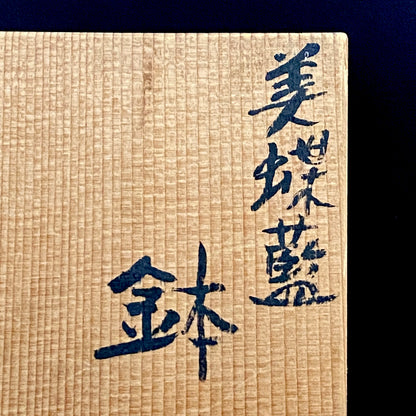 美蝶藍
鉢